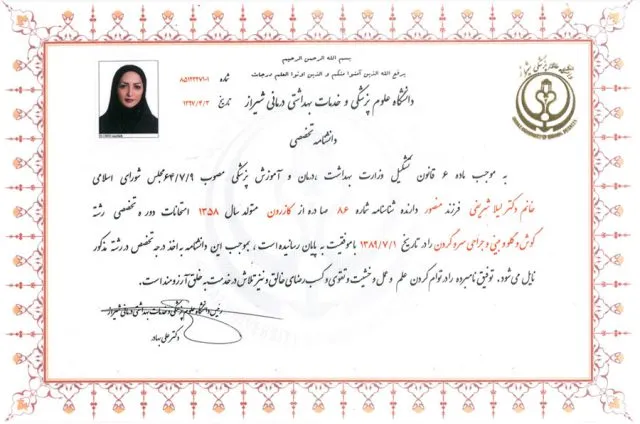 بسم الله الرحمن الرحیم
یرفع الله الذین آمنوا منکم و الذین اوتوا العلم درجات
شماره ۸۵۱۲۳۲۷۱-۱
تاریخ ۱۳۹۷/۳/۳
دانشگاه علوم پزشکی و خدمات بهداشتی درمانی شیراز
دانشنامه تخصصی
به موجب ماده ۶ قانون تشکیل وزارت بهداشت ،درمان و آموزش پزشکی مصوب ۶۴/۷/۹ مجلس شورای اسلامی
خانم دکتر لیلا شریفی فرزند منصور دارنده شناسنامه شماره ۸۶ صادره از کازرون متولد سال ۱۳۵۸ امتحانات دوره تخصصی رشته
گوش و گلو و بینی و جراحی سر و گردن را در تاریخ ۱۳۸۹/۷/۱ با موفقیت به پایان رسانیده است، بموجب این دانشنامه به اخذ درجه تخصص در رشته مذکور
نایل می‌شود. توفیق نامبرده را در توام کردن علم و عمل و خشیت و تقوی و کسب رضای خالق و نیز تلاش در خدمت به خلق آرزومند است.
رئیس دانشگاه علوم پزشکی و خدمات بهداشتی درمانی شیراز
دکتر علی بهادر